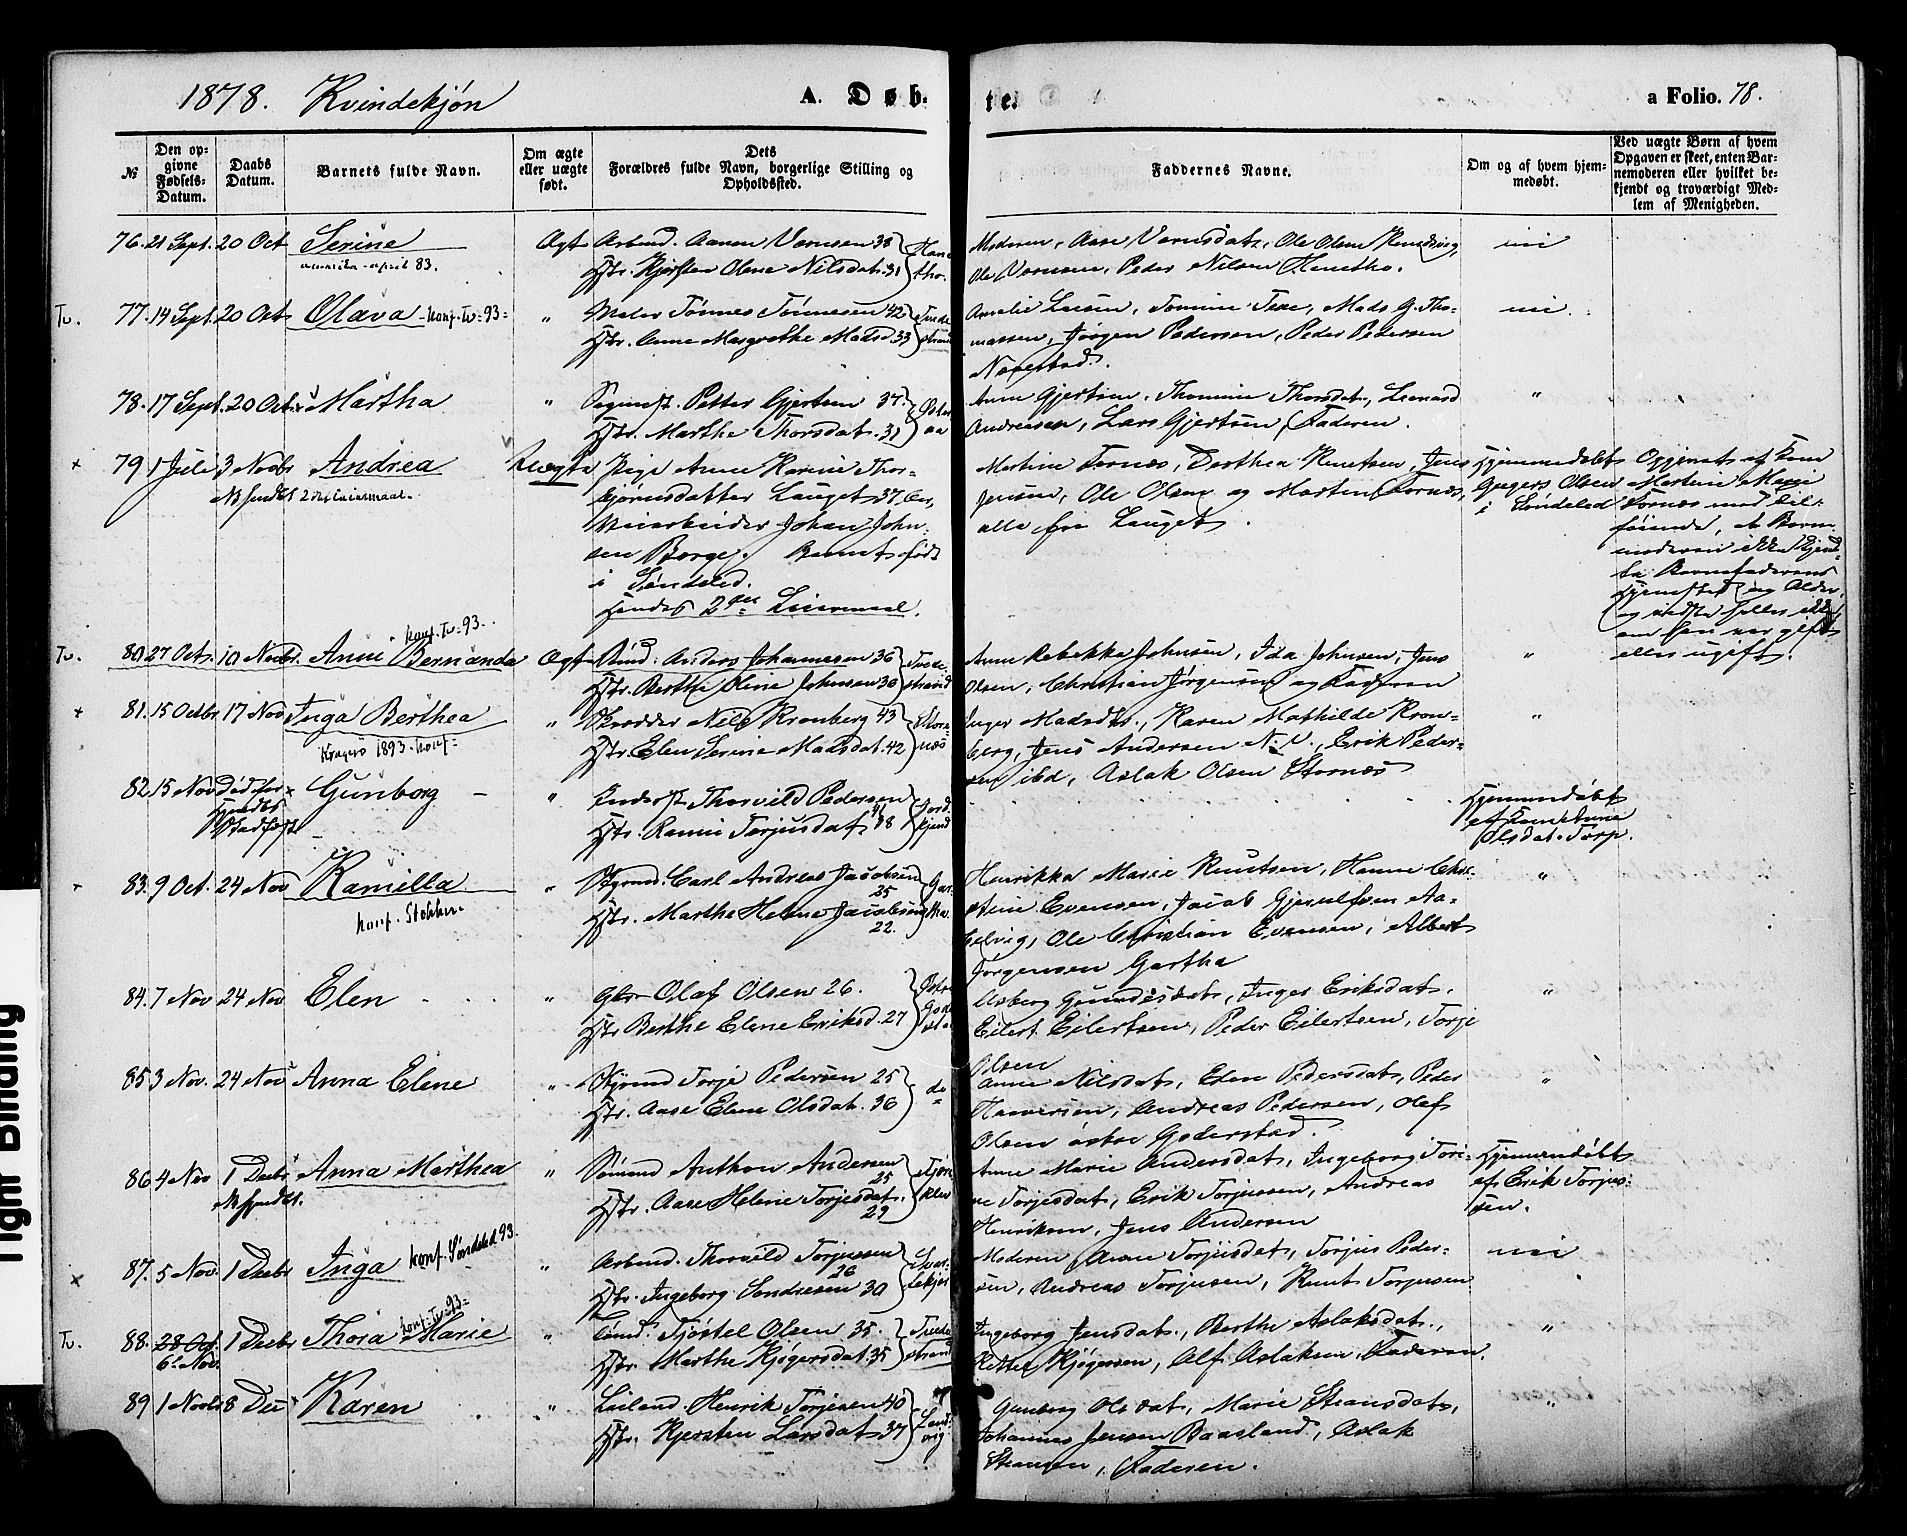 1878. Kvindekjøn
A. Døb-
te.
a Folio. 78.
№
Den op-
givne
Fødsels-
Datum.
Daabs
Datum.
Barnets fulde Navn.
Om ægte
eller uægte
født.
Dets
Forældres fulde Navn, borgerlige Stilling og
Opholdsted.
Faddernes Navne.
Om og af hvem hjem-
medøbt.
Ved uægte Børn af hvem
Opgaven er skeet, enten Bar-
nemoderen eller hvilket be-
kjendt og troværdigt Med-
lem af Menigheden.
76. 21 Sept. 20 Oct Serine Ægt Arbmd. Aanen Vernsen 38
amerika - april 83.
Hstr. Kjersten Olene Nilsdat. 31
Moderen, Aase Vernsdat, Ole Olsen
Ole Vernsen, Peder Nilsen
Tv. 77. 14 Sept. 20 Oct Olava - konf. Tv = 93 = " Maler Tønnes Tønnesen 42 Tvede-
Hstr. Anne Margrethe Madsd. 33 strand
Amalie Larsen, Tomine Texe, Mads G. Tho-
massen, Jørgen Pedersen, Peder Pedersen
78. 17 Sept. 20 Oct. Martha " Petter Gjertsen 37.
Hstr. Marthe Thorsdat. 31
Anne Gjertsen, Thomine Thorsdat, Leonard
Andreasen, Lars Gjertsen, Faderen. "
+ 79 1 Juli 3 Novbr Andrea Uægte Pige Anne Karine Thor-
bjørnsdatter Lauget 37 Aar,
Johan John-
sen Borge. Barnet født
i Søndeled.
Hendes 2den Leiermaal.
Martine Fornæs, Dorthea Knutsen, Jens
Jensen, Ole Olsen og Morten Fornæs,
alle fra Lauget.
Hjemmedøbt
Olsen
i Søndeled
Opgivet af Kone
Martine Marie
Fornæs med Til-
føiende, at Barne-
moderen ikke kjend-
te Barnefaderens
Hjemsted og Alder,
om han var gift
eller ugift.
Tv. 80 27 Oct. 10 Novbr. Anne Bernanda Ægt Anders Johannesen 36 Tvede-
konf. Tv = 93.
Hstr. Berthe Oline Johnsen 36 strand
Anne Rebekka Johnsen, Ida Johnsen, Jens
Olsen, Christian Jørgensen og Faderen "
+ 81. 15 Octbr 17 Nov Inga Berthea " Skrædder Nils Kronberg 43 Stor-
Kragerø 1893 - konf =
Hstr. Elen Serine Madsdat. 42 næs
Inger Madsdtr., Karen Mathilde Kron-
berg, Jens Andersen N. N., Erik Peder-
sen ibd, Aslak Olsen Stornæs "
82. 15 Nov Død før Gunborg "
Thorvild Pedersen 41
Hstr. Torjusdat 38
Hjemmedøbt
af Kone Anne
Olsdat. Torp.
+ 83. 9 Oct. 24 Nov Kamilla " Styrmd. Carl Andreas Jacobsen
25
Hstr. Marthe Helene Jacobsen
22.
Henrikka Marie Knutsen, Hanne Chri-
stine Evensen, Jacob Gjerulfsen Aa-
selvig, Ole Christian Evensen, Albert
Jørgensen Gartha "
84. 7 Nov 24 Nov Elen " Olaf Olsen 26.
Hstr. Berthe Elene Eriksd. 27
Asberg Gundersdat, Inger Eriksdat.
Eilert Eilertsen, Peder Eilertsen, Torje
Olsen "
85 3 Nov. 24 Nov Anna Elene " Styrmd Torje Pedersen 25 do
Hstr. Aase Elen Olsdat. 36
Anne Nilsdat, Elen Pedersdat, Peder
Haaversen, Andreas Pedersen, Olef
Olsen østre Goderstad. "
86 4 Nov 1 Decbr Anna Marthea " Sømand Anthon Andersen
25
Hstr. Aase Helene Torjesdat.
29
Anne Marie Andersdat, Ingeborg Tori-
ne Torjesdat, Erik Torjussen, Andreas
Henriksen, Jens Andersen
Hjemmedøbt
af Erik Torjus-
sen.
× 87. 5 Nov. 1 Decbr Inga konf. Søndeled 93. " Arbmd. Thorvild Torjussen
26
Hstr. Ingeborg Sondresen 30
Moderen, Anne Torjusdat, Torjus Peder-
sen, Andreas Torjusen, Knut Torjusen
Tv. 88. 28 Oct. 1 Decbr Thora Marie " Tømd. Tjøstel Olsen 35. Tvede-
konf. Tv = 93 =
6. Nov. Hstr. Marthe Kjøgersdat. 35 strand
Ingeborg Jensdat., Berthe Aslaksdat.,
Petter Kjøgersen, Alf Aslaksen, Faderen. "
89 1 Novbr 8 Dec Karen " Leiland. Henrik Torjesen 40 Sand-
Hstr. Kjersten Larsdat. 37 vig
Gunborg Olsdat, Marie Steansdat,
Johannes Jensen Baasland, Aslak
Steansen, Faderen. "
Tight Binding